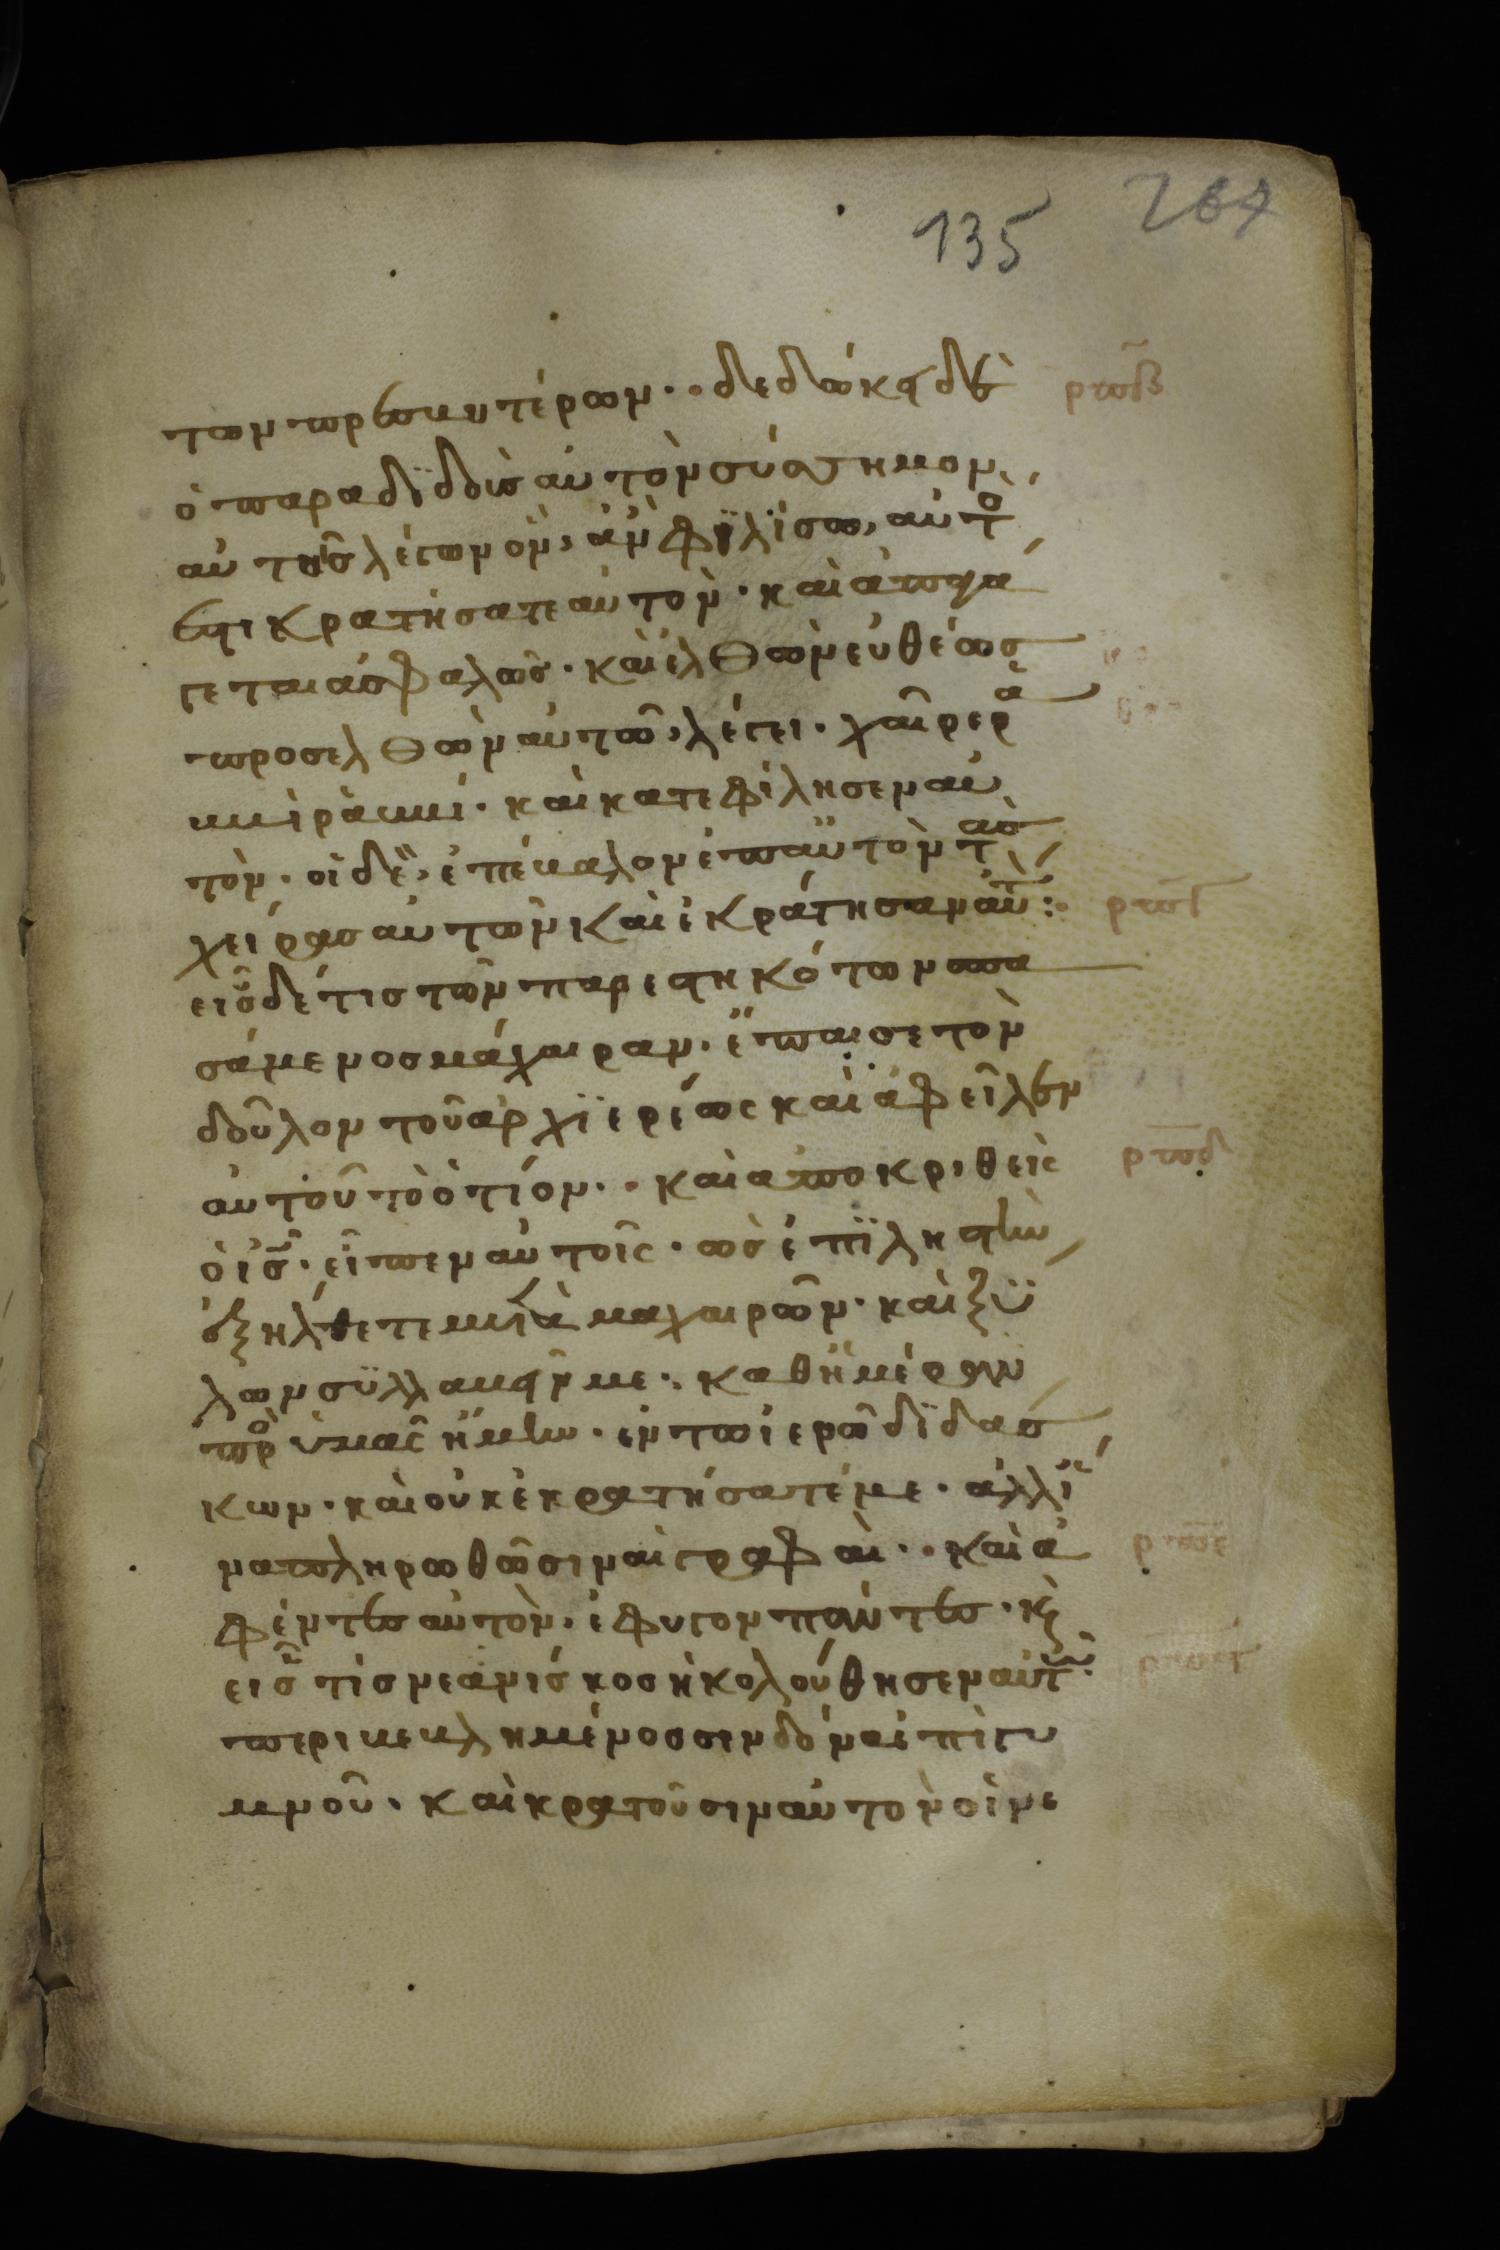 135 264
των πρεσβυτέρων·· δεδώκει δὲ ρπβ
ὁ παραδϊδοὺς αὐτὸν σύσσημον
αὐτοῖς λέγων ὃν, ἂν φϊλΐσω, αὐτό
ἐστι κρατήσατε αὐτὸν· καὶ ἀπαγά
γεται ἀσφαλῶς· καὶ ἐλθὼν εὐθέως
προσελθὼν αὐτῶ, λέγει· χαῖρε ρα
ββὶ ραββί· καὶ κατεφίλησεν αὐ
τὸν· οἱ δὲ, ἐπέβαλον ἐπ αὐτὸν τ ας
χείρας αὐτῶν καὶ ἐκράτησαν αὐτ: ρπγ
εἷς δέ τις τῶν παρεστηκότων σπα
σάμενος μάχαιραν· ἔπαισε τὸν
δοῦλον τοῦ ἀρχϊερέως καὶ ἀφεῖλεν
αὐτοῦ τὸ ὀτίον·· καὶ ἀποκριθεὶς ρπδ
ὁ ις· εἶπεν αὐτοῖς· ὡς ἐπϊ ληστὴν
ἐξήλθετε μετὰ μαχαιρῶν· καὶ ξϋ
λων συλλαβεῖν με· καθ ἡμέραν
πρὸ ὑμᾶς ἤμην· ἐν τῶ ἱερῶ δϊδάσ
κων· καὶ οὐκ ἐκρατήσατέ με· ἀλλ ἵ
να πληρωθῶσιν αἱ γραφαὶ·· καὶ ἀ ρπε
φέντες αὐτὸν· ἔφυγον πάντες· κ
εἷς τὶς νεανίσκος ἠκολούθησεν αὐτ ρπϛ
περιβεβλημένος σινδόνα ἐπὶ γυ
μνοῦ· καὶ κρατοῦσιν αὐτὸν οἱ νε